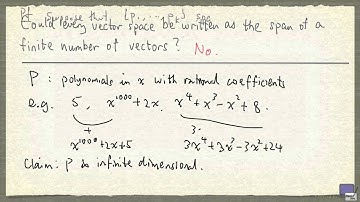 Pf Suppose that {p₁, ... p_k} span
Could every vector space be written as the span of a
finite number of vectors? No.
P : polynomials in x with rational coefficients
e.g. 5, x¹⁰⁰⁰+2x, x⁴+x³-x²+8.
+ 3·
x¹⁰⁰⁰+2x+5 3x⁴+3x³-3x²+24
Claim: P is infinite dimensional.